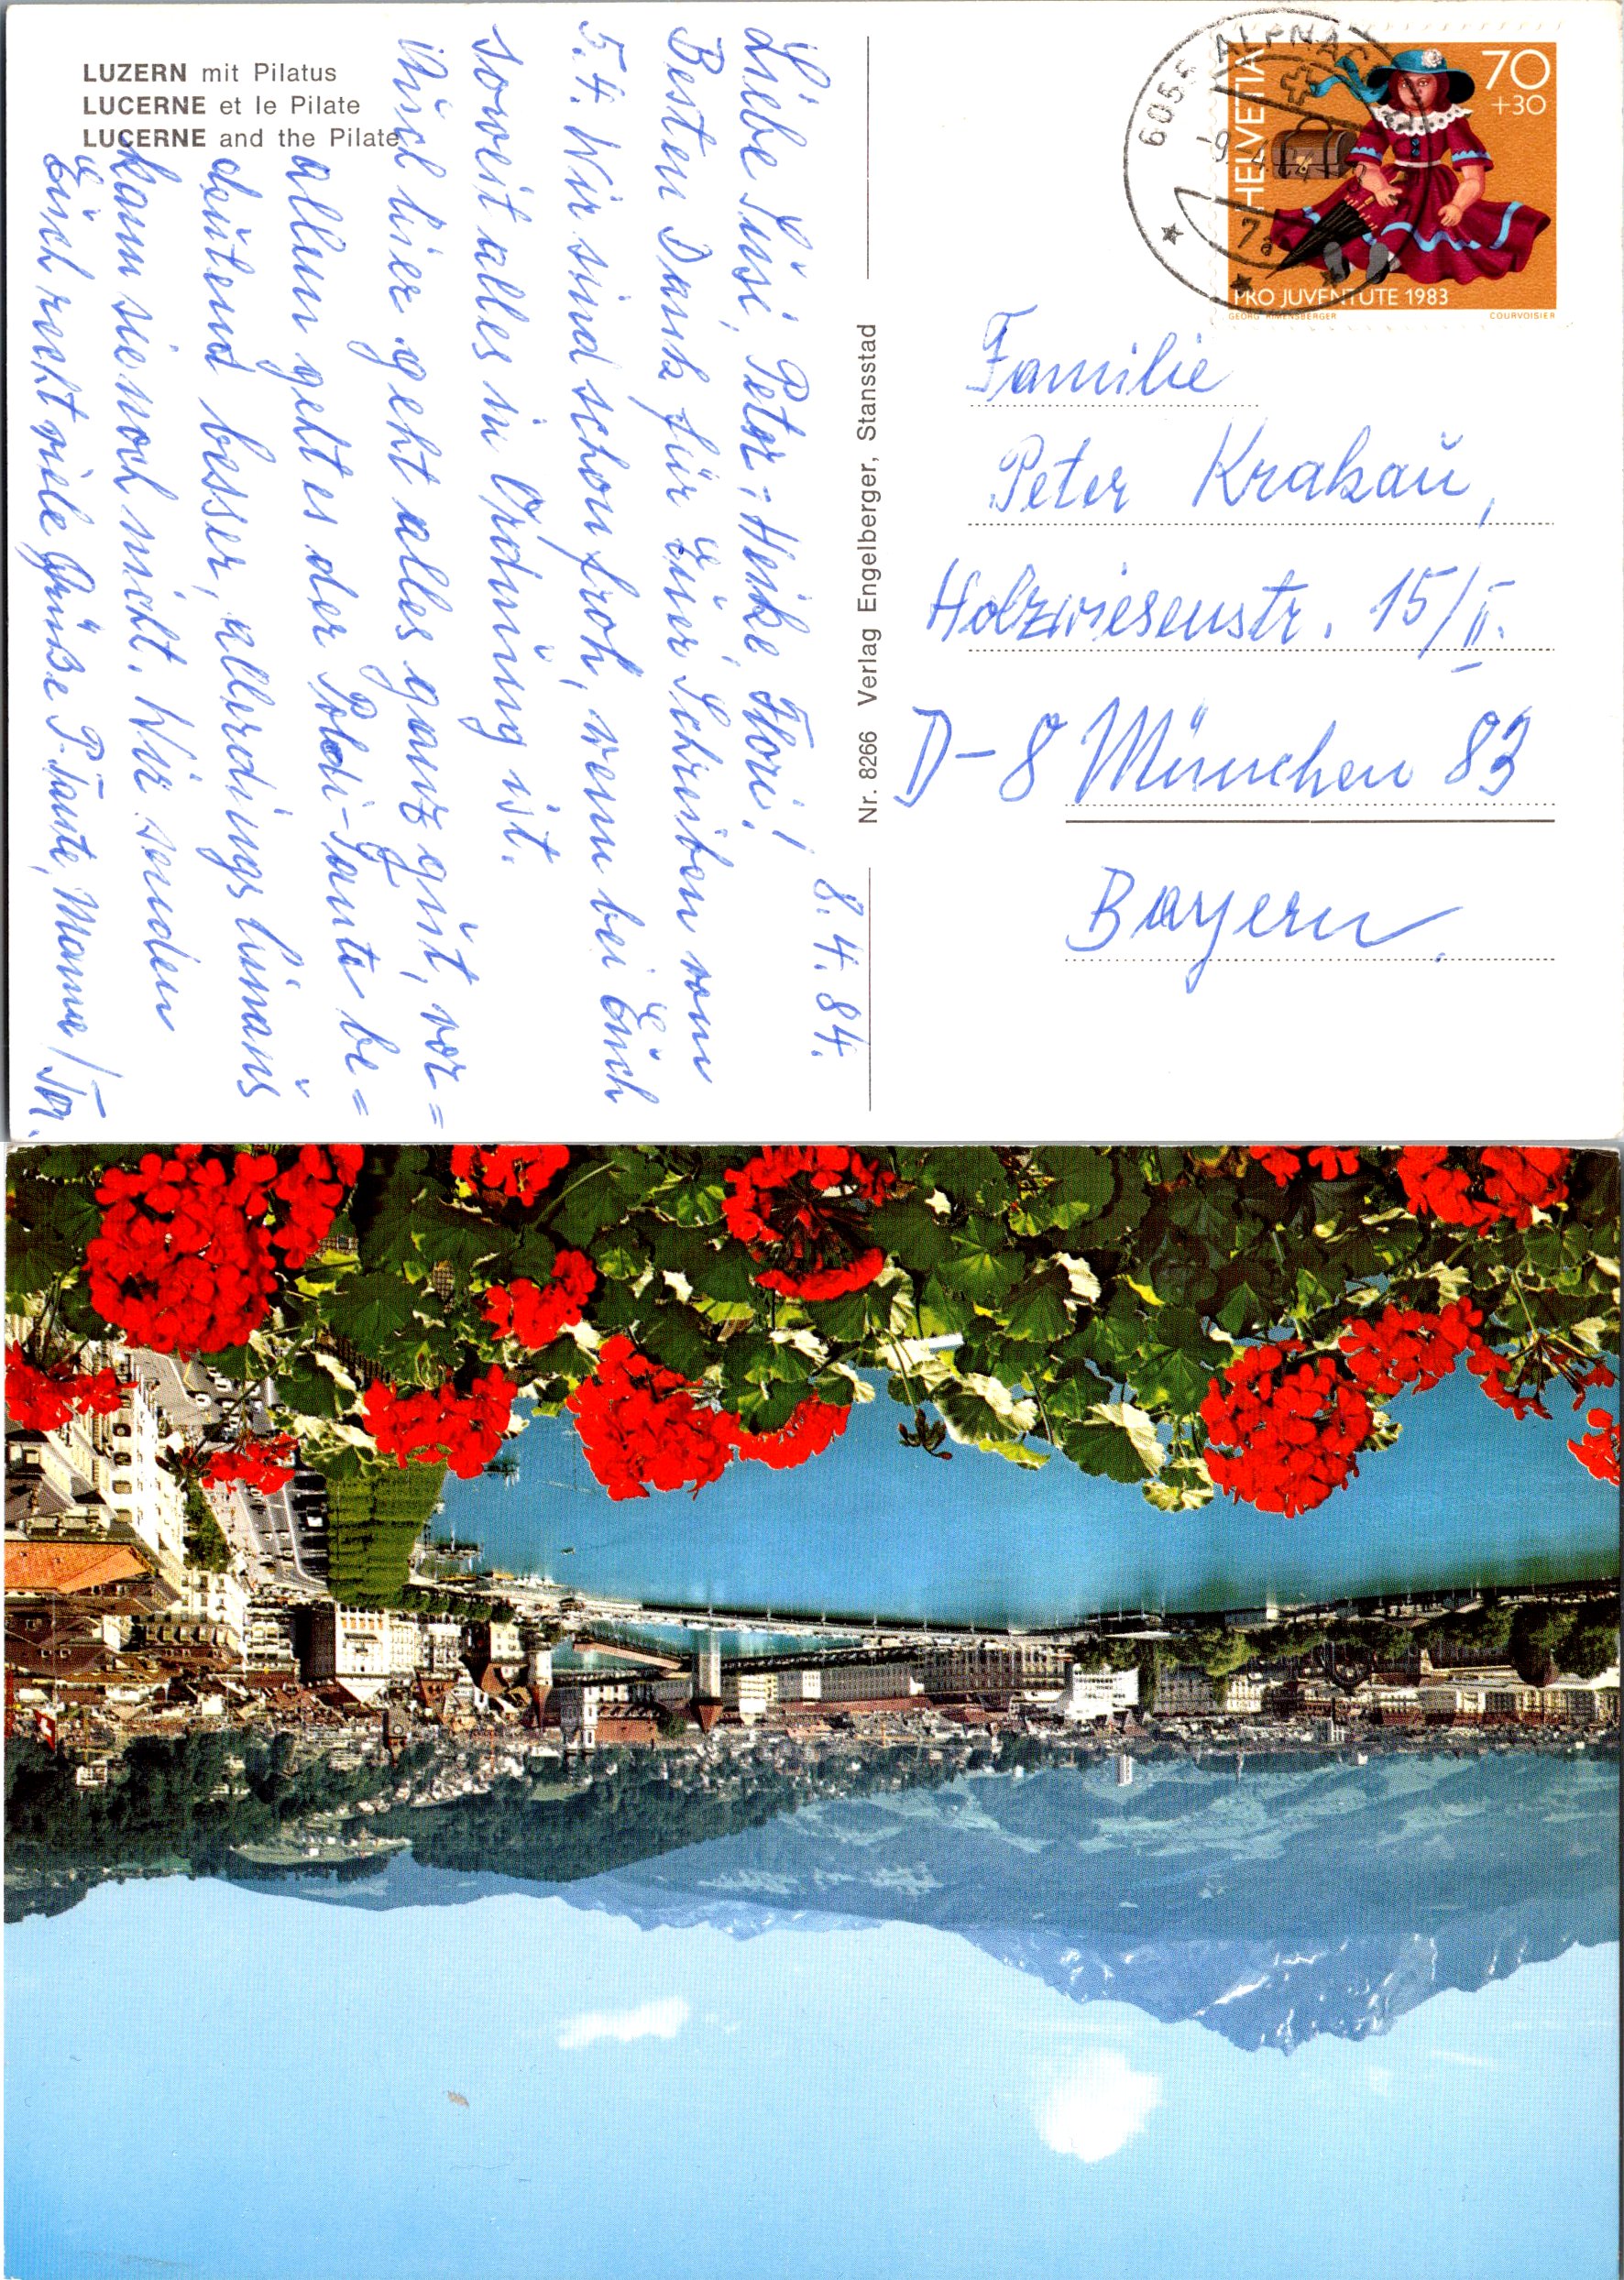 LUZERN mit Pilatus
LUCERNE et le Pilate
LUCERNE and the Pilate
8. 4. 84.
Liebe Susi, Peter, Heike, Flori!
Besten Dank für Euer Schreiben vom
5.4. Wir sind schon froh, wenn bei Euch
soweit alles in Ordnung ist.
Auch hier geht alles ganz gut, vor=
allem geht es der Poldi-Tante be=
deutend besser, allerdings hinaus
kann sie noch nicht. Wir senden
Euch recht viele Grüße P. Tante, Mama /
Nr. 8266 Verlag Engelberger, Stansstad
6055 ALPNACH
-9.-4
7a
HELVETIA
70
+30
PRO JUVENTUTE 1983
GEORG RIMENSBERGER
COURVOISIER
Familie
Peter Krakau,
Holzwiesenstr. 15/II.
D-8 München 83
Bayern.